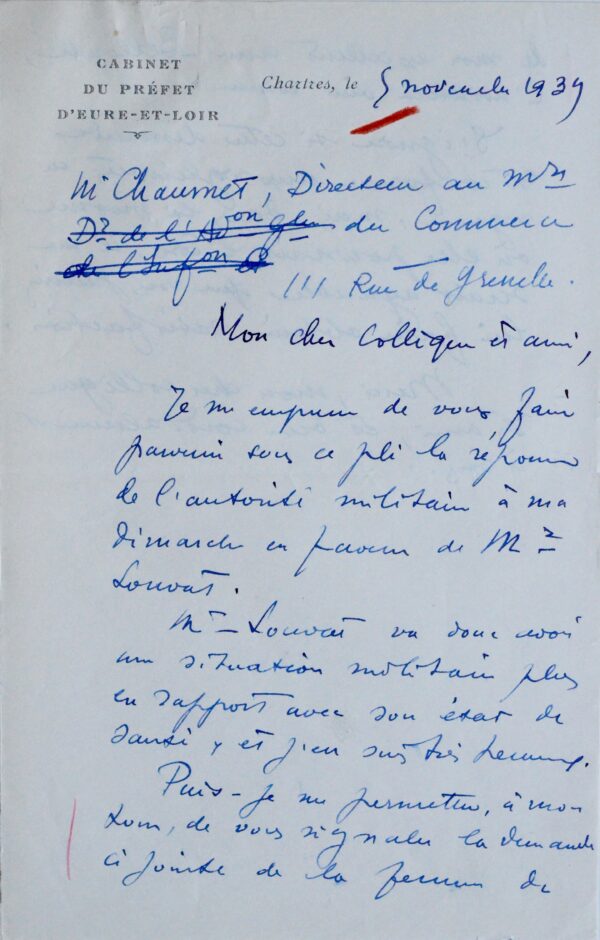 CABINET
DU PRÉFET
D'EURE-ET-LOIR
Chartres, le 5 novembre 1939
Mr Chaumet, Directeur au Mtère
Dr de l'Adon Gle du Commerce
de l'Infon
111 Rue de Grenelle.
Mon cher Collègue et ami,
Je m'empresse de vous faire
parvenir sous ce pli la réponse
de l'autorité militaire à ma
démarche en faveur de Mr
Louvat.
Mr Louvat va donc avoir
une situation militaire plus
en rapport avec son état de
santé, et j'en suis très heureux.
Puis-je me permettre, à mon
tour, de vous signaler la demande
ci jointe de la femme de